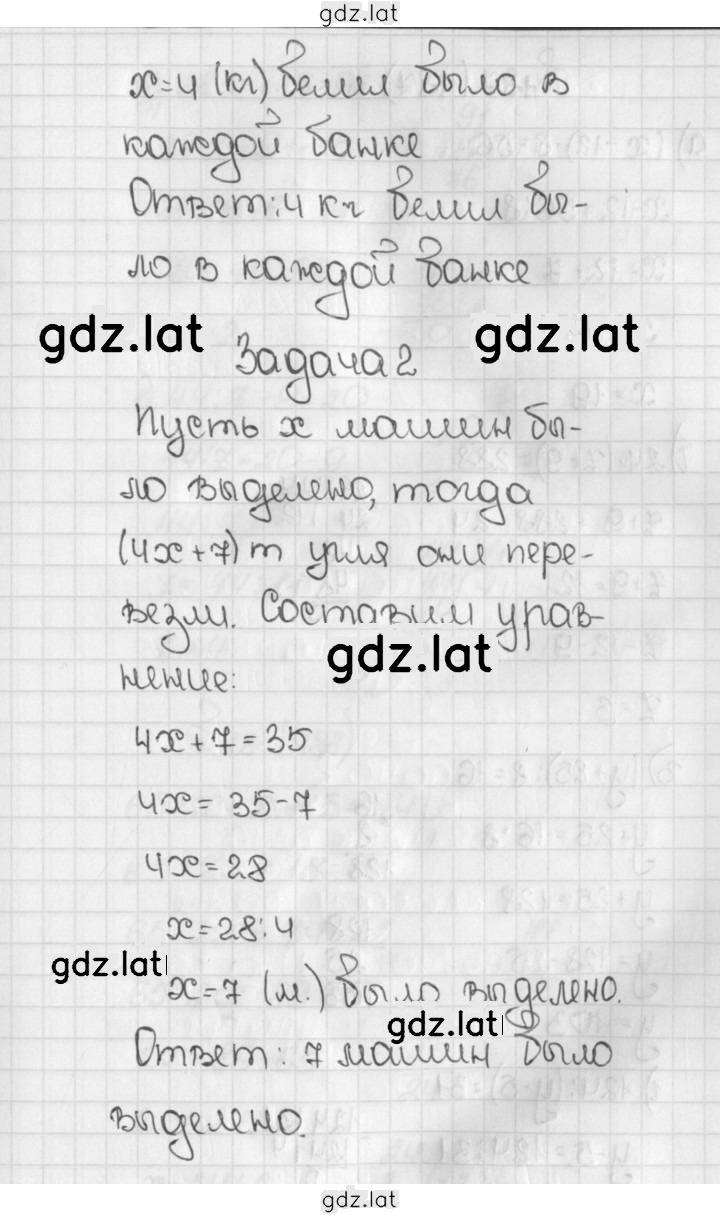 gdz.lat
x=4 (кг) белил было в
каждой банке
Ответ: 4 кг белил бы-
ло в каждой банке
gdz.lat
gdz.lat
Задача 2
Пусть x машин бы-
ло выделено, тогда
(4x+7) т угля они пере-
везли. Составим урав-
gdz.lat
нение:
4x+7=35
4x=35-7
4x=28
x=28:4
gdz.lat
x=7 (м.) было выделено.
gdz.lat
Ответ: 7 машин было
выделено.
gdz.lat